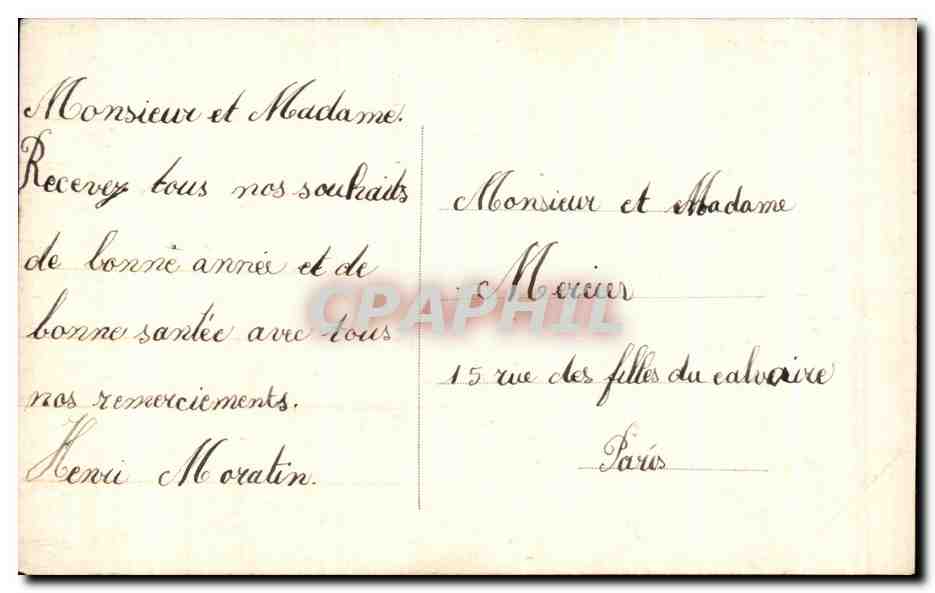 Monsieur et Madame.
Recevez tous nos souhaits
de bonne année et de
bonne santée avec tous
nos remerciements.
Henri Moratin.
Monsieur et Madame
Mercier
15 rue des filles du calvaire
Paris
CPAPHIL